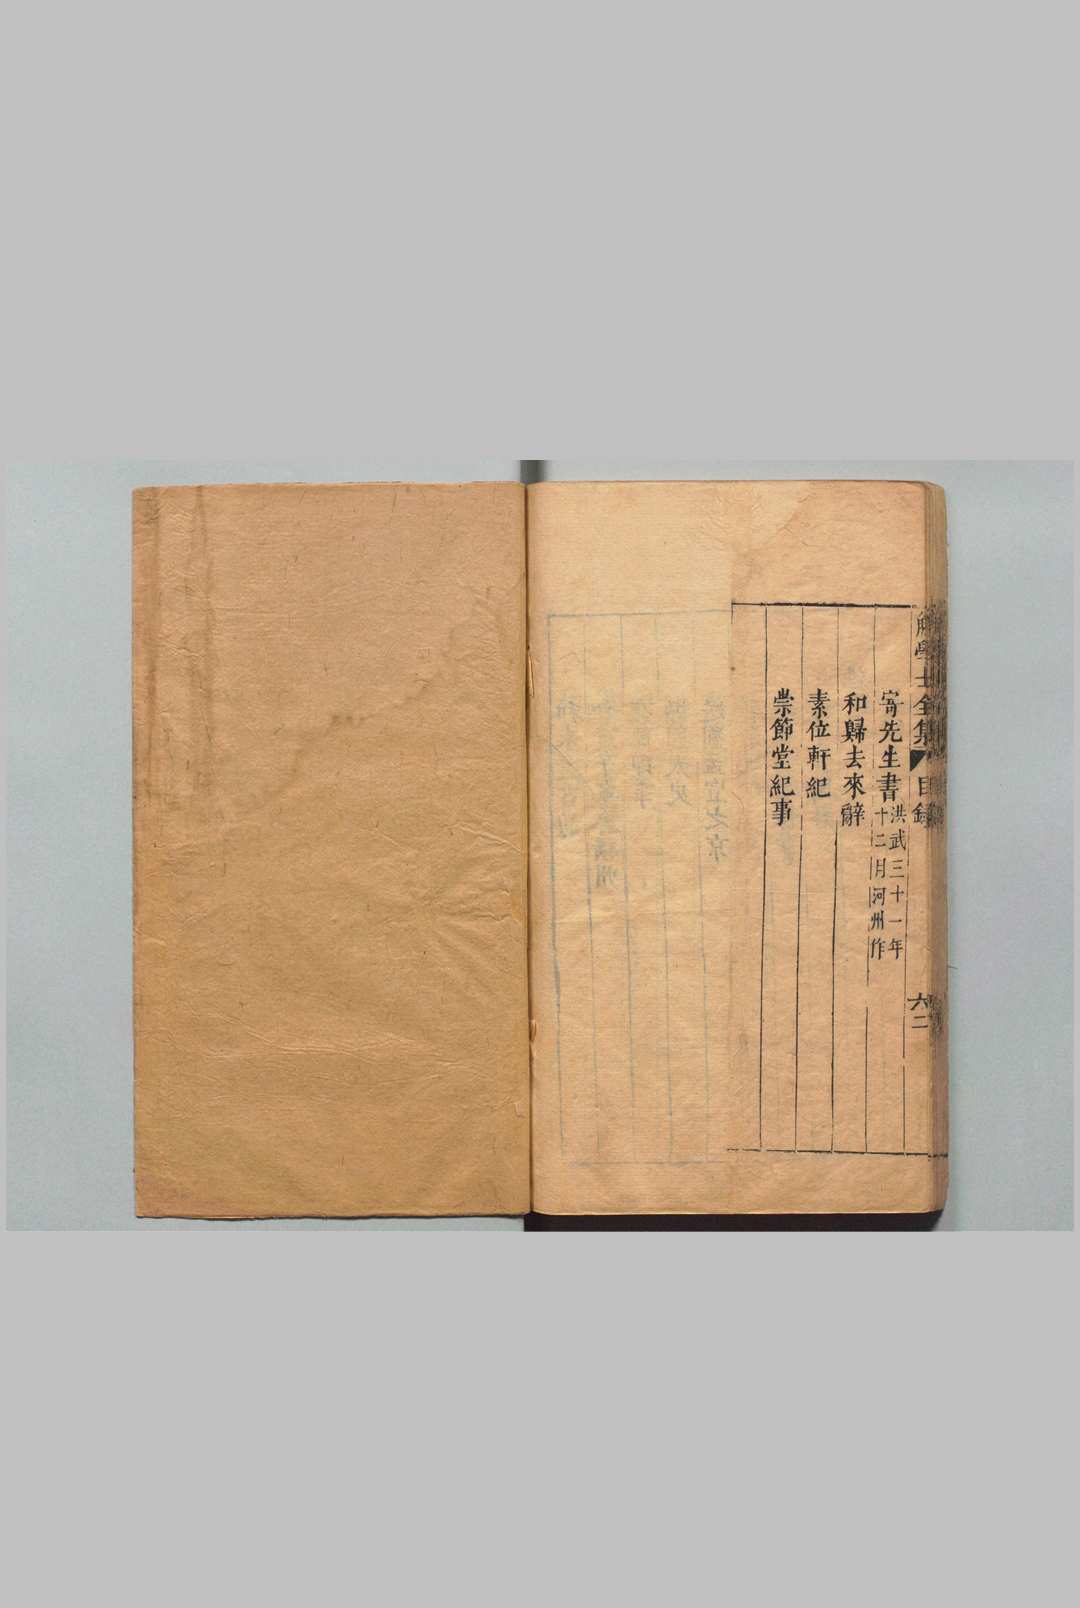 解學士全集 目錄 六二
寄先生書 洪武三十一年
十二月河州作
和歸去來辭
素位軒紀
崇節堂紀事